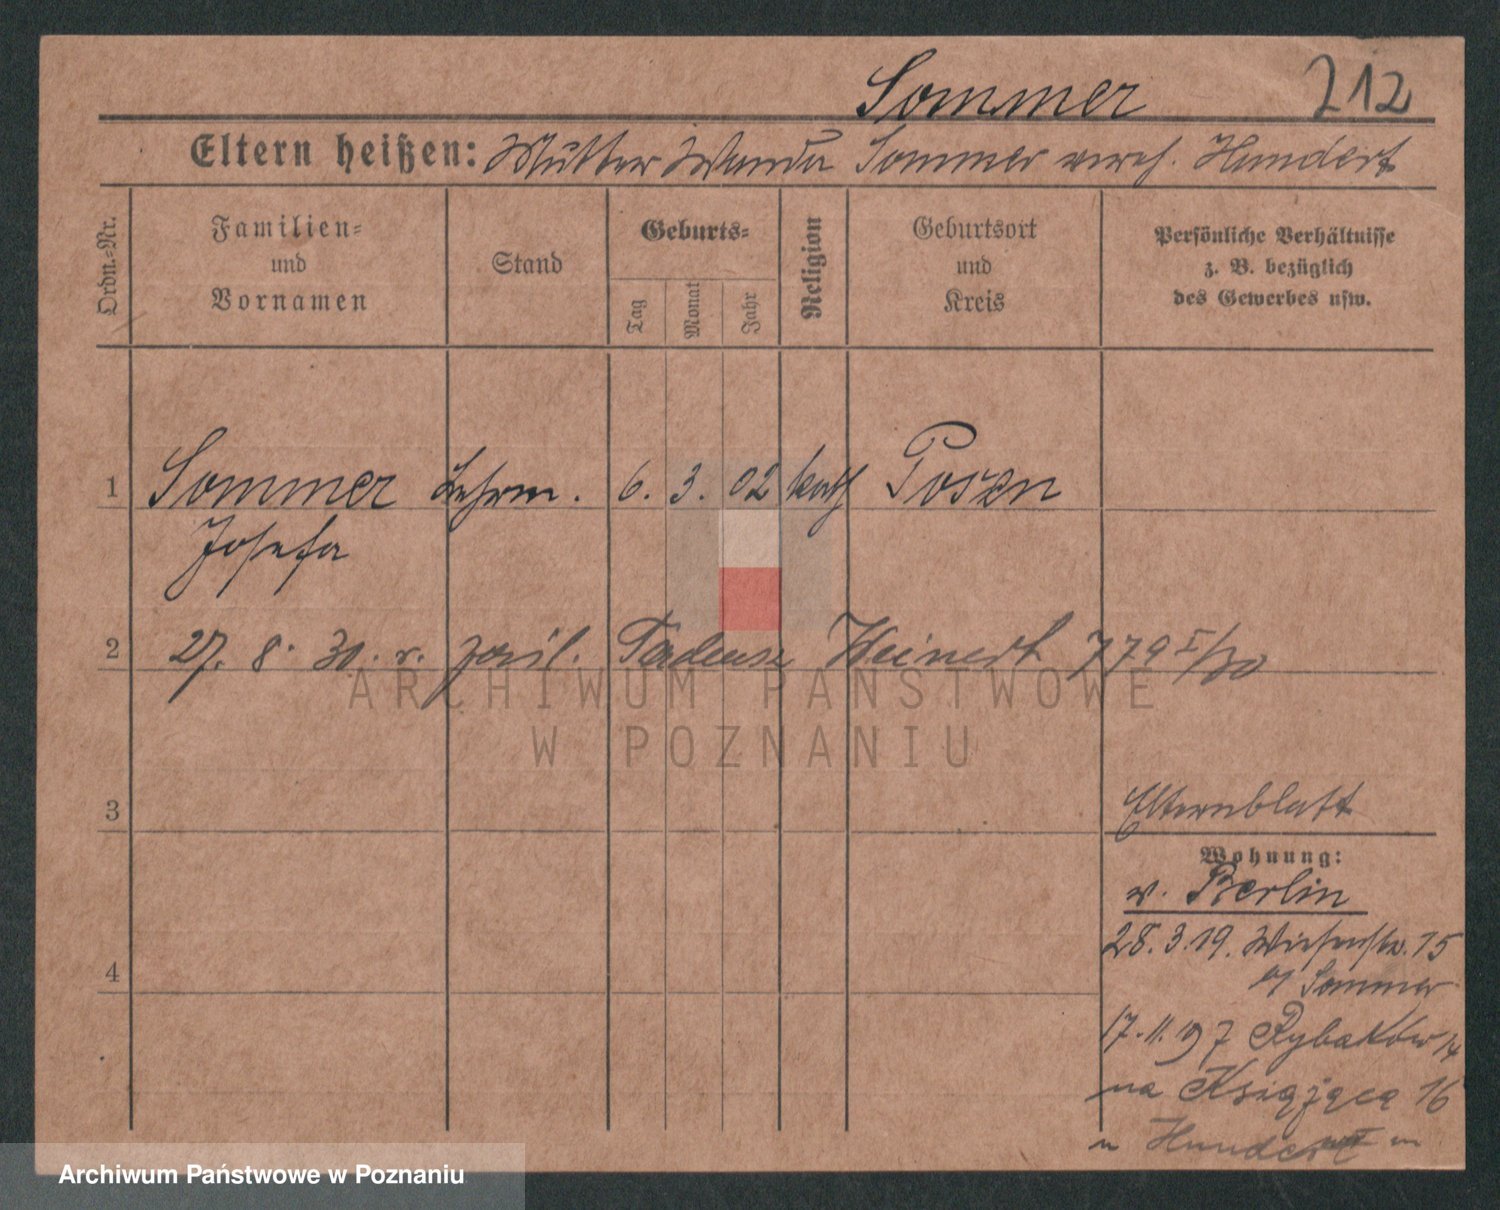 Sommer 212
Eltern heißen: Mutter Wanda Sommer vereh. Hundert
Ordn.-Nr.
Familien-
und
Vornamen
Stand
Geburts-
Tag
Monat
Jahr
Religion
Geburtsort
und
Kreis
Persönliche Verhältnisse
z. B. bezüglich
des Gewerbes usw.
1 Sommer Lehrm. 6. 3. 02 kath Poszn
Josefa
2 27. 8. 30. r. Tadeusz Heinert 779 I/30
ARCHIWUM PAŃSTWOWE
W POZNANIU
3
Elternblatt
Wohnung:
v. Berlin
28.3.19. Wiesenstr. 15
Sommer
4
17.11.19 z Rybaków 14
na Książęcą 16
u Hundert
Archiwum Państwowe w Poznaniu